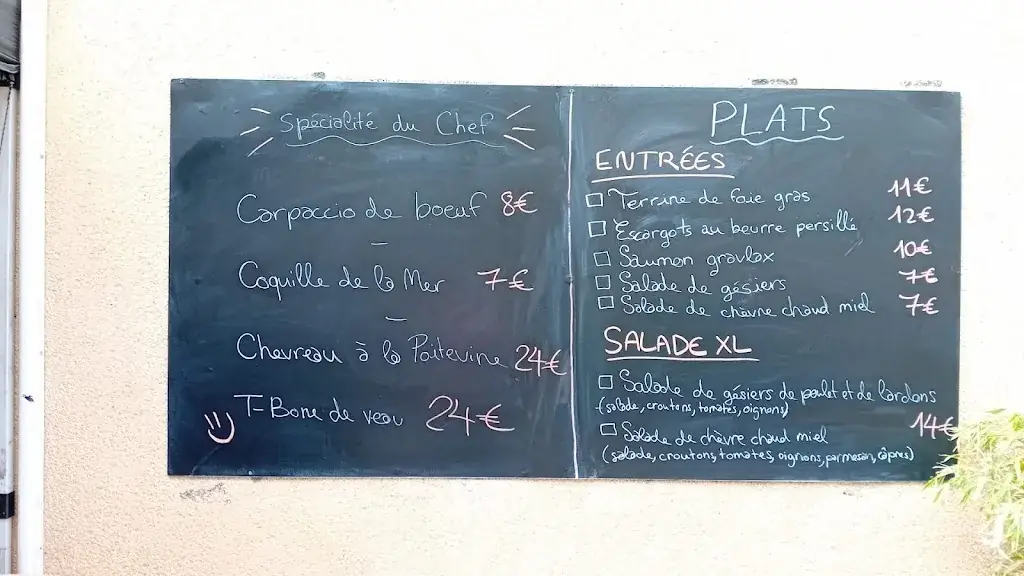 Spécialité du Chef
Carpaccio de boeuf 8€
Coquille de la Mer 7€
Chevreau à la Poitevine 24€
T-Bone de veau 24€
PLATS
ENTRÉES
Terrine de foie gras 11€
Escargots au beurre persillé 12€
Saumon gravlax 10€
Salade de gésiers 7€
Salade de chèvre chaud miel 7€
SALADE XL
Salade de gésiers de poulet et de lardons
(salade, croutons, tomates, oignons)
Salade de chèvre chaud miel 14€
(salade, croutons, tomates, oignons, parmesan, câpres)